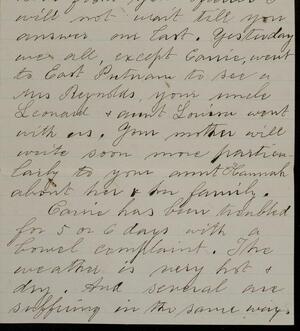 will not wait till you
answer our last. Yesterday
we all, except Carrie, went
to East Putnam to see a
Mrs Reynolds, your uncle
Leonard & aunt Louisa went
with us. Your mother will
write soon more particu-
larly to your aunt Hannah
about her & our family.
Carrie has been troubled
for 5 or 6 days with a
bowel complaint. The
weather is very hot &
dry. And several are
suffering in the same way.